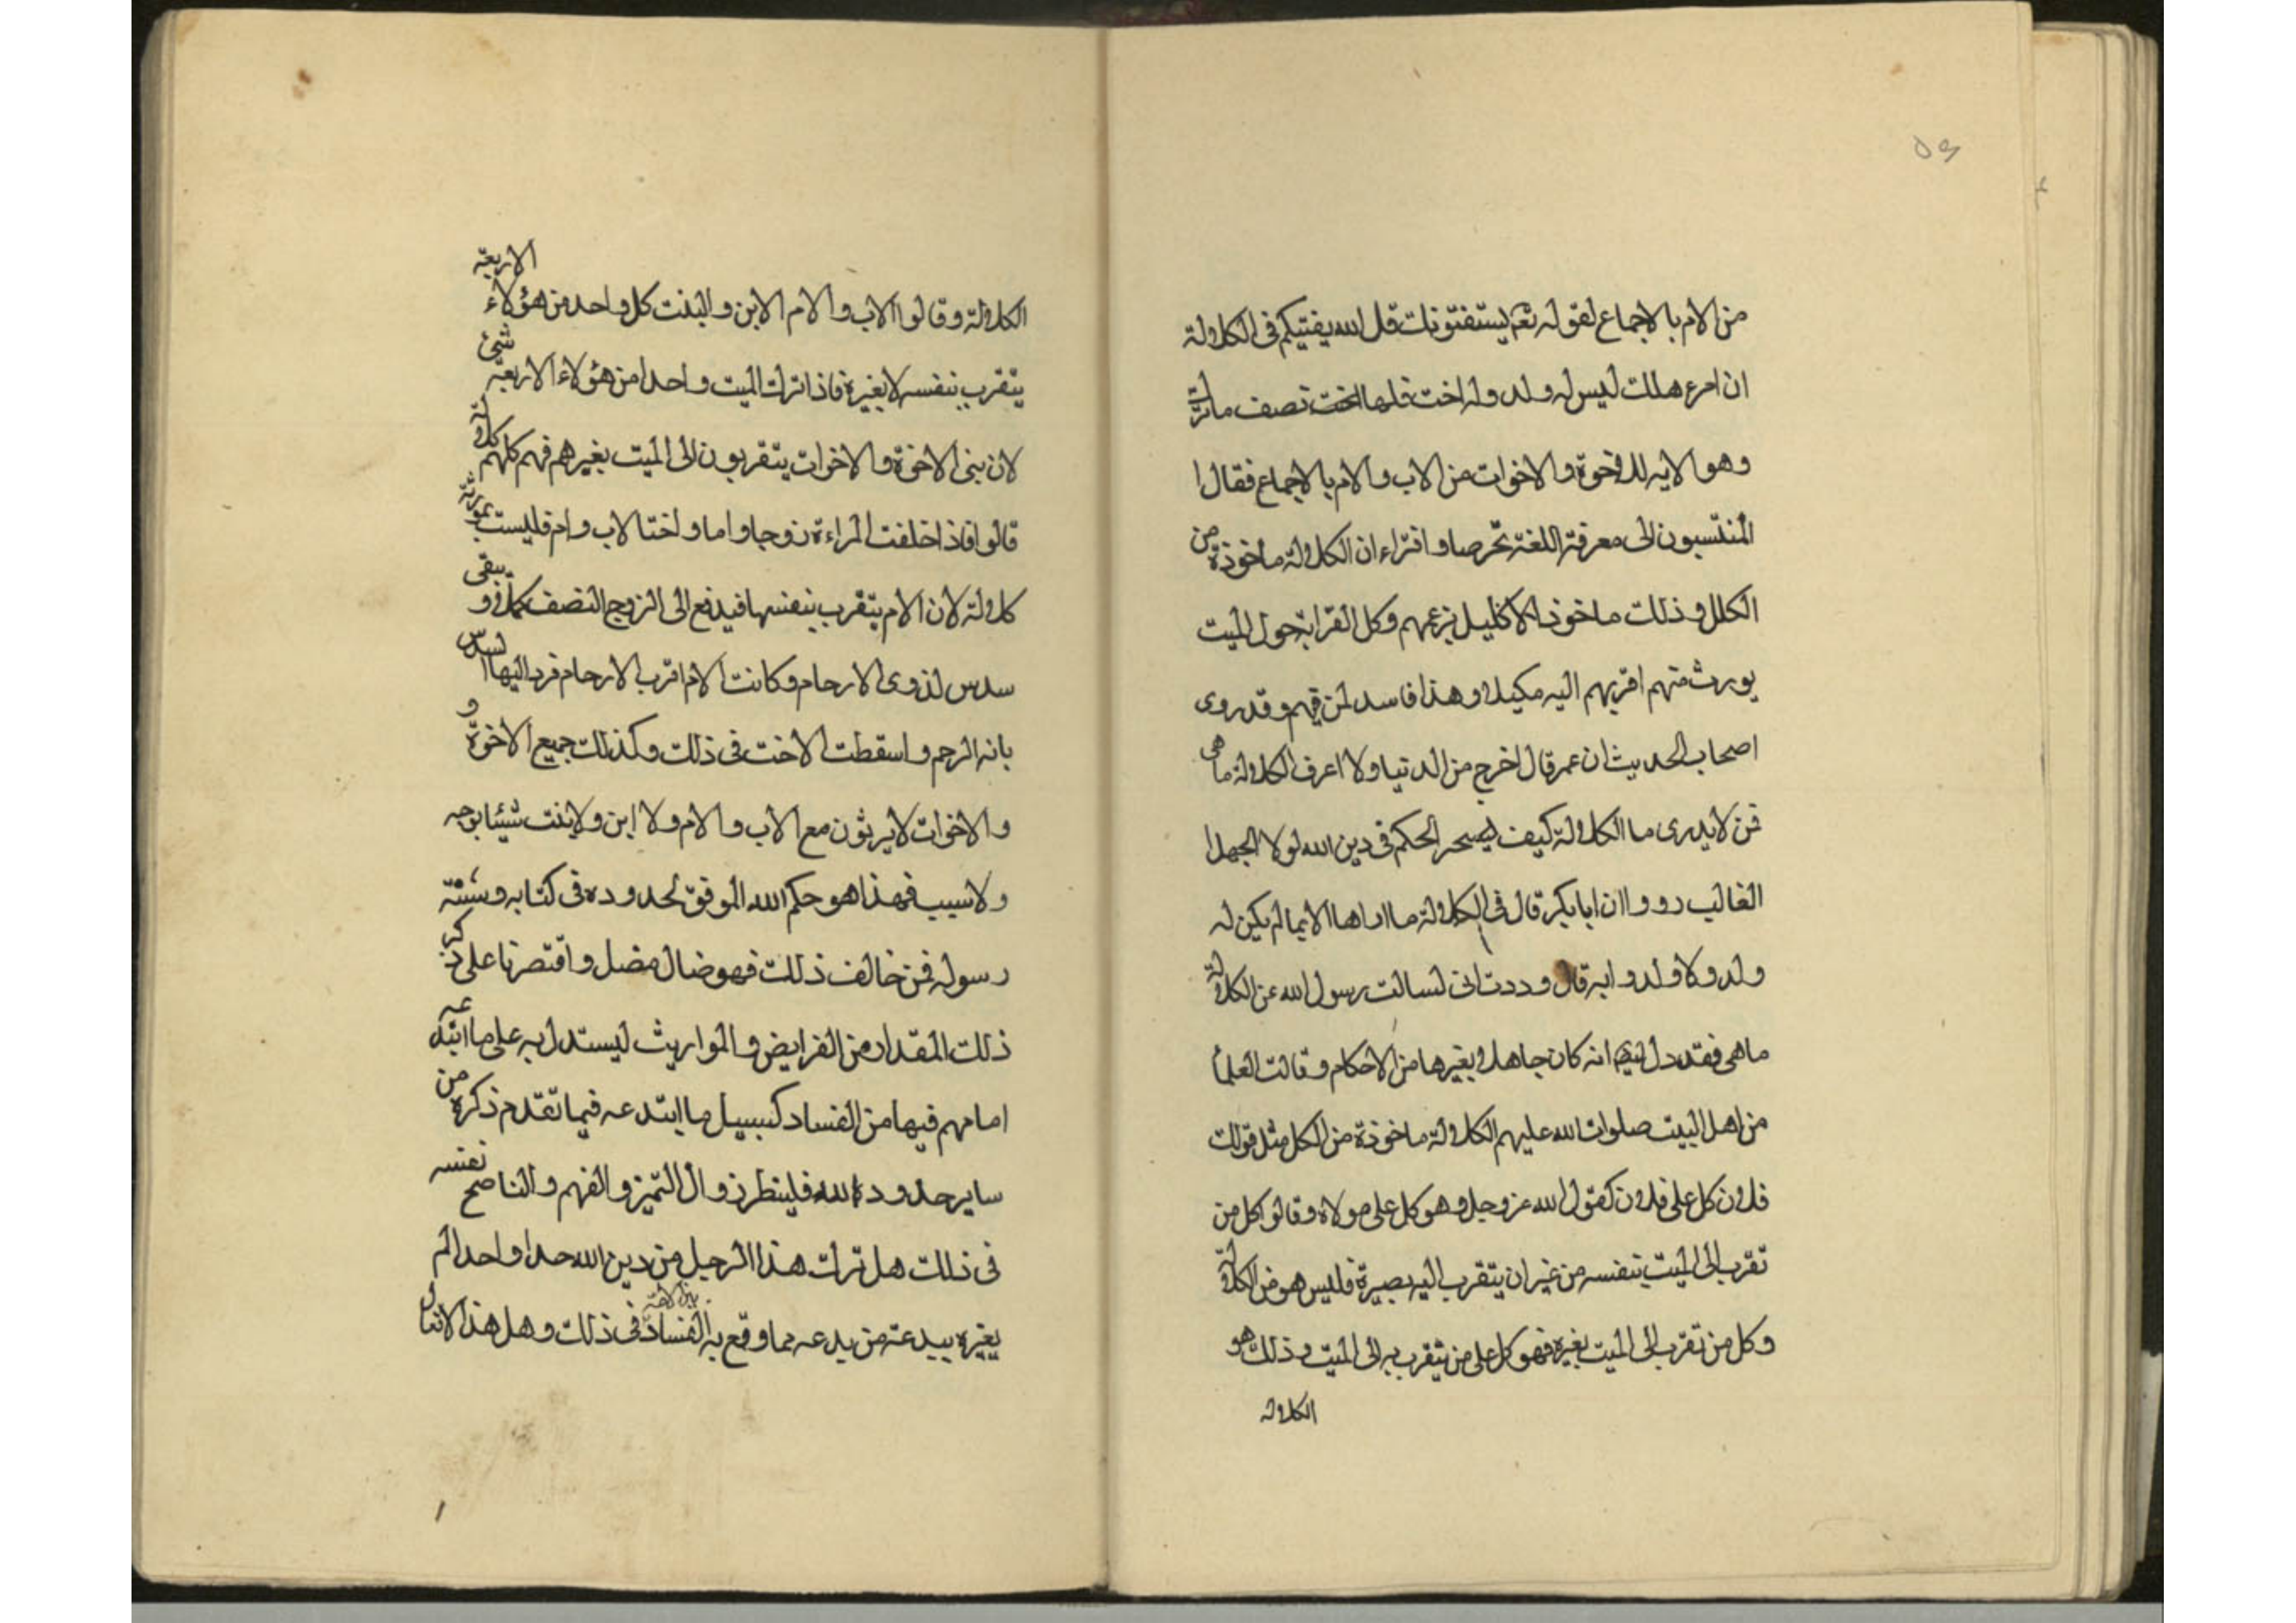 ٥٩
من الام بالاجماع لقوله تعم يستفتونك قل الله يفتيكم فى الكلالة
ان امرء هلك ليس له ولد وله اخت فلها نصف ما ترك
وهو الايه للاخوة والاخوات من الاب والام بالاجماع فقال
المنتسبون الى معرفة اللغة تخرصا وافتراء ان الكلالة ماخوذة من
الكلل وذلك ماخوذ الاكليل بزعمهم وكل القرابة حول الميت
يورث منهم اقربهم اليه مكيلا وهذا فاسد لمن فهم وقد روى
اصحاب الحديث ان عمر قال اخرج من الدنيا ولا اعرف الكلالة ما هى
فمن لا يدرى ما الكلالة كيف الحكم فى دين الله لولا الجهل
الغالب رووا ان ابا بكر قال فى الكلالة ما اراها الا بما لم يكن له
ولد ولا ولد و ابه قال وددت انى لسالت رسول الله عن الكلالة
ما هى فقد دل انه كان جاهلا بغيرها من الاحكام وقالت العلماء
من اهل البيت صلوات الله عليهم الكلالة ماخوذة من الكل مثل قولك
فلان كل على فلان كقول الله عز وجل وهو كل على مولاه وقالوا كل من
تقرب الى الميت بنفسه من غير ان يتقرب اليه بصيرة فليس هو من الكلالة
وكل من تقرب الى الميت بغيره فهو كل على من يتقرب به الى الميت وذلك هو
الكلالة
الكلالة وقالوا الاب والام الابن والبنت كل واحد من هؤلاء الاربعة
يتقرب بنفسه لا بغيره فاذا ترك الميت واحدا من هؤلاء الاربعة شئ
لان بنى الاخوة والاخوات يتقربون الى الميت بغيرهم فهم كلهم كلالة
قالوا فاذا خلفت المراءة زوجا واما واختا لاب وام فليست بموارثة
كلالة لان الام يتقرب بنفسها فيدفع الى الزوج النصف كملا و يبقى
سدس لذوى الارحام وكانت الام اقرب الارحام فرد اليها السدس
بانه الرحم واسقطت الاخت فى ذلك وكذلك جميع الاخوة و
والاخوات لا يرثون مع الاب والام ولا ابن ولا بنت شيئا بوجه
ولا سبب فهذا هو حكم الله الموفق لحدوده فى كتابه وسنة
رسوله فمن خالف ذلك فهو ضال مضل واقتصرنا على ذكر
ذلك المقدار من الفرايض والمواريث ليستدل به على ما ابتدعه
امامهم فيها من الفساد كسبيل ما ابتدعه فيما تقدم ذكره من
ساير حدود الله فلينظر ذو التميز والفهم والناصح نفسه
فى ذلك هل ترك هذا الرجل من دين الله حدا واحدا لم
يغيره ببدعة من بدعه مما وقع به الفساد فى ذلك وهل هذا الافعال